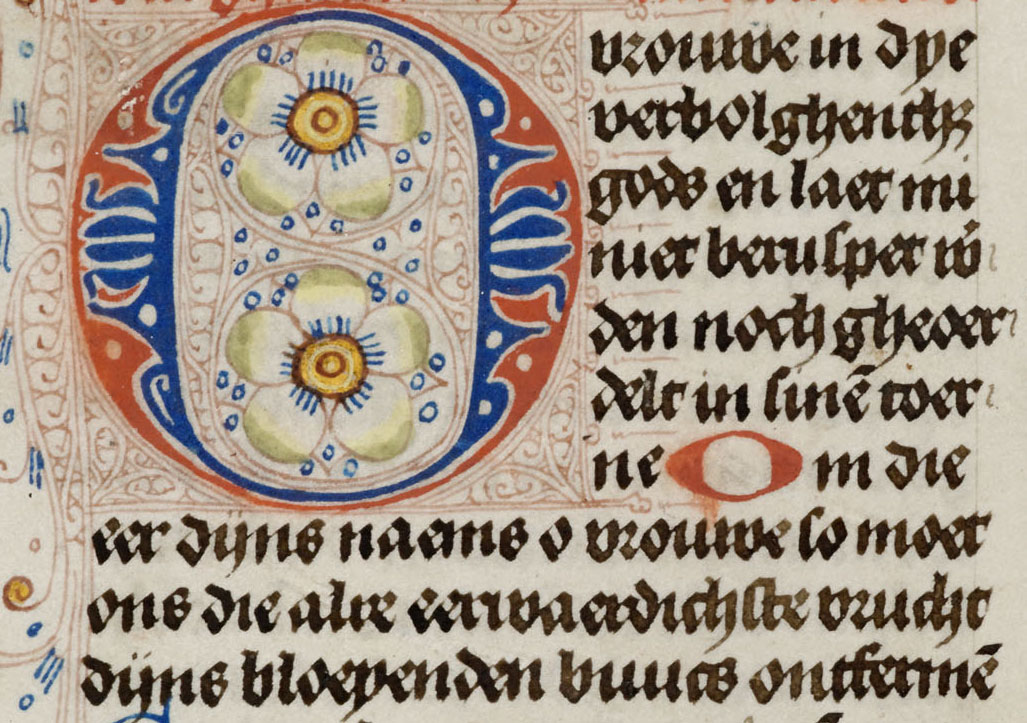 O vrouwe in dye
verbolghenthꝫ
gods en laet mi
niet beruspet wō
den noch gheoer
delt in sinē toer
ne Om die
eer dijns naems o vrouwe so moet
ons die alre eerwaerdichste vrucht
dijns bloeyenden buucs ontfermē